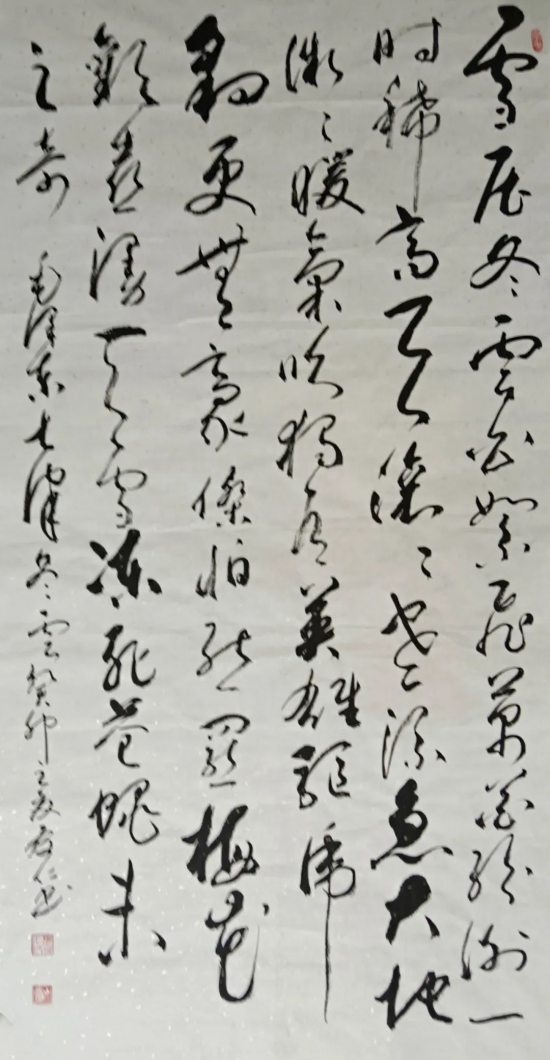 雪压冬云白絮飞万花纷谢一
时稀高天滚滚寒流急大地
微微暖气吹独有英雄驱虎
豹更无豪杰怕熊罴梅花
欢喜漫天雪冻死苍蝇未
足奇 毛泽东七律冬云癸卯之夏友仁书